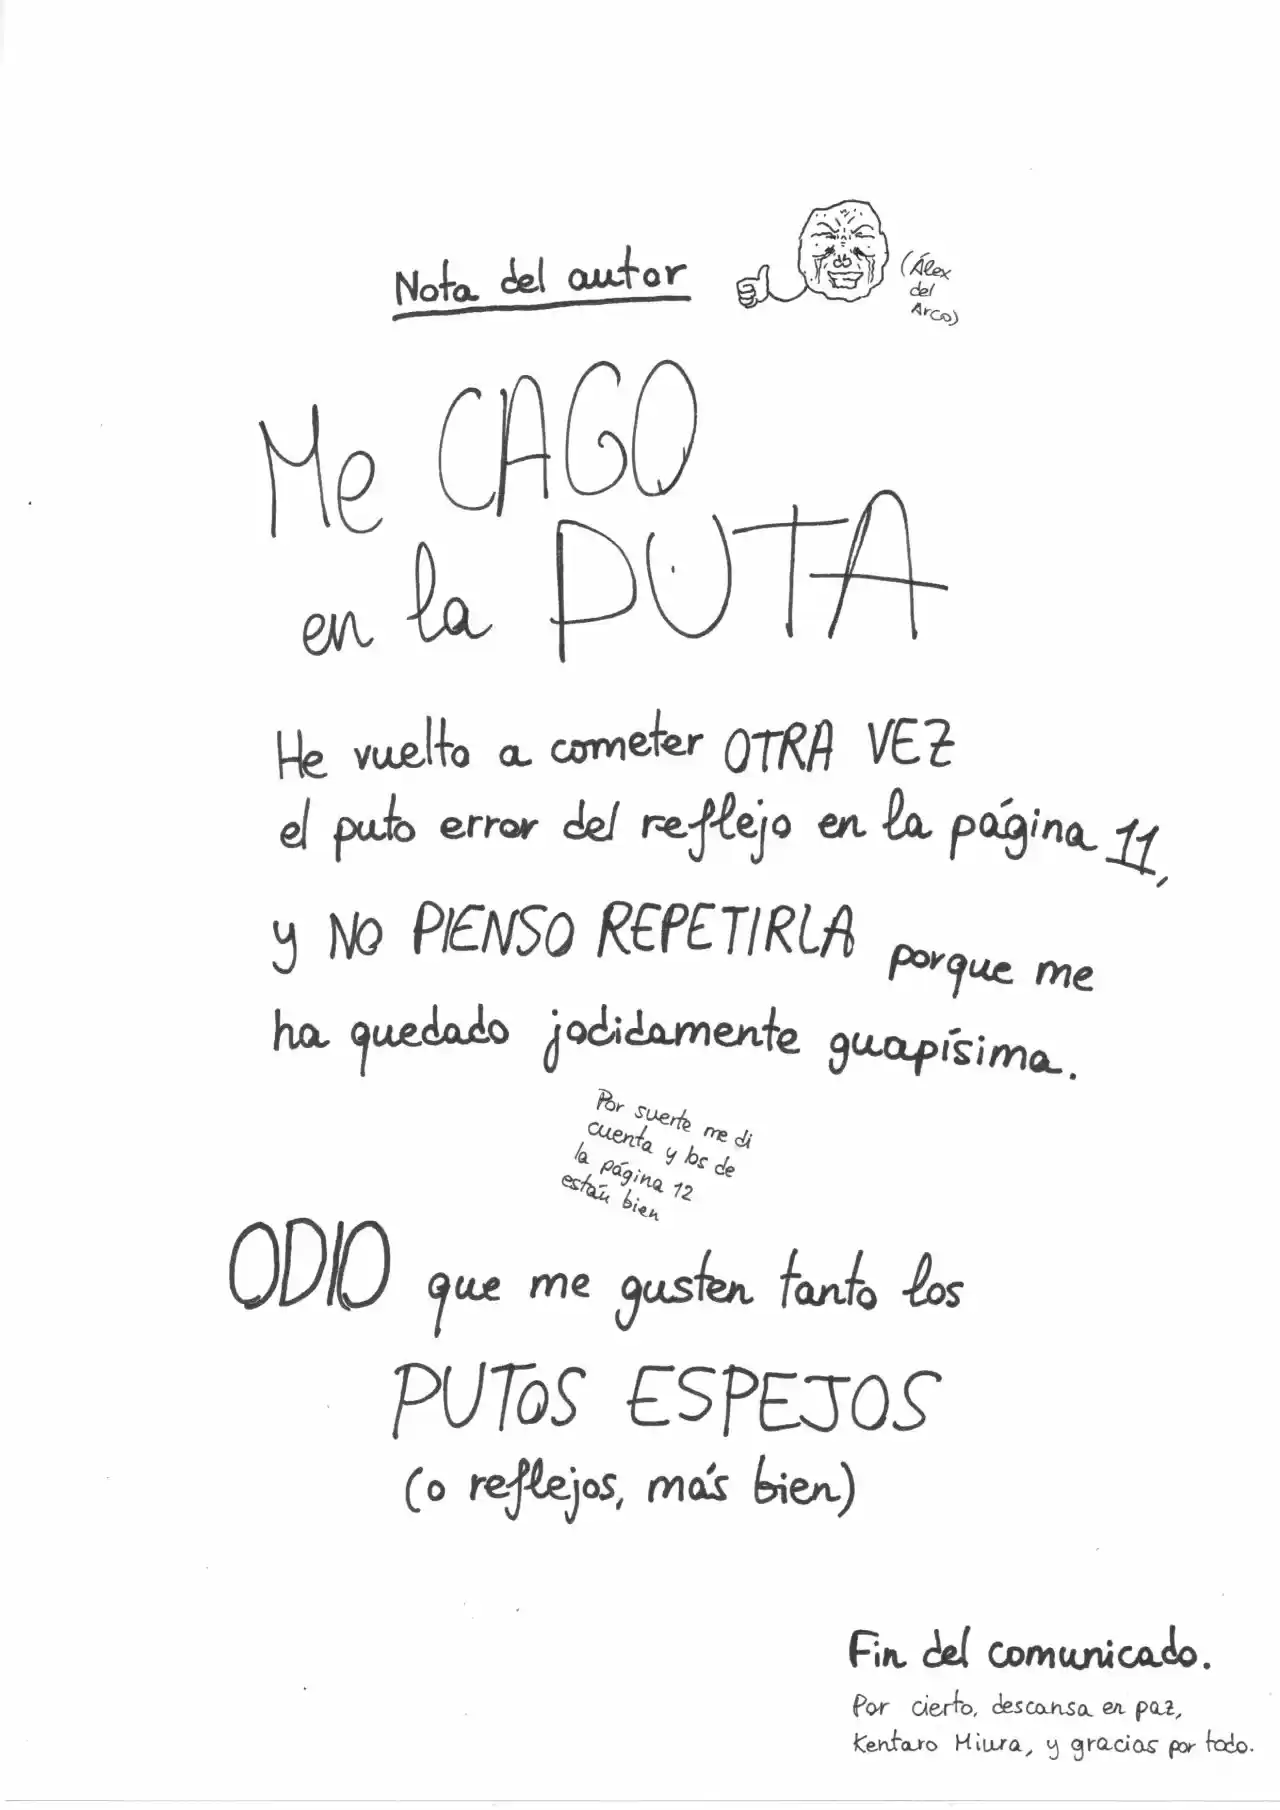 Nota del autor
(Álex
del
Arco)
Me CAGO
en la PUTA
He vuelto a cometer OTRA VEZ
el puto error del reflejo en la página 11,
y NO PIENSO REPETIRLA porque me
ha quedado jodidamente guapísima.
Por suerte me di
cuenta y los de
la página 12
están bien
ODIO que me gusten tanto los
PUTOS ESPEJOS
(o reflejos, más bien)
Fin del comunicado.
Por cierto, descansa en paz,
Kentaro Miura, y gracias por todo.